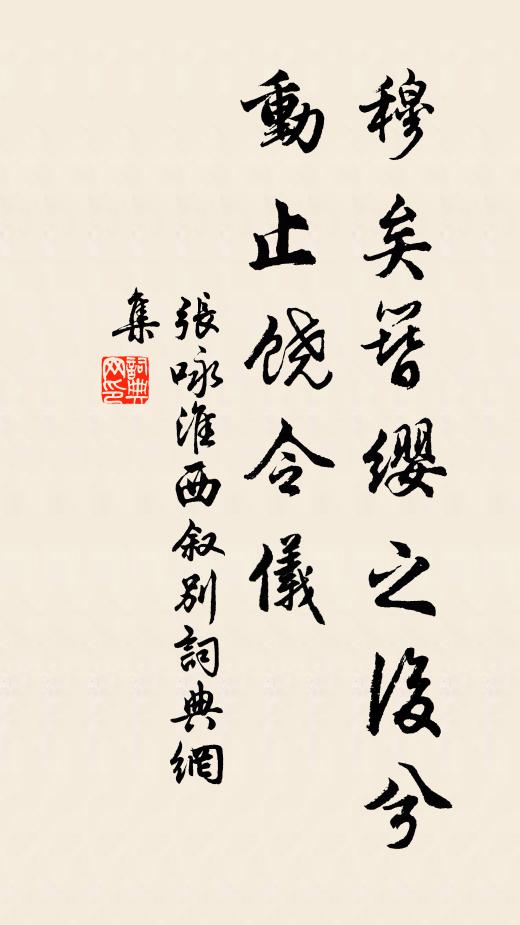 穆矣簪纓之後兮
動止饒令儀
張咏淮西叙别詞典網
集
詞典
网印